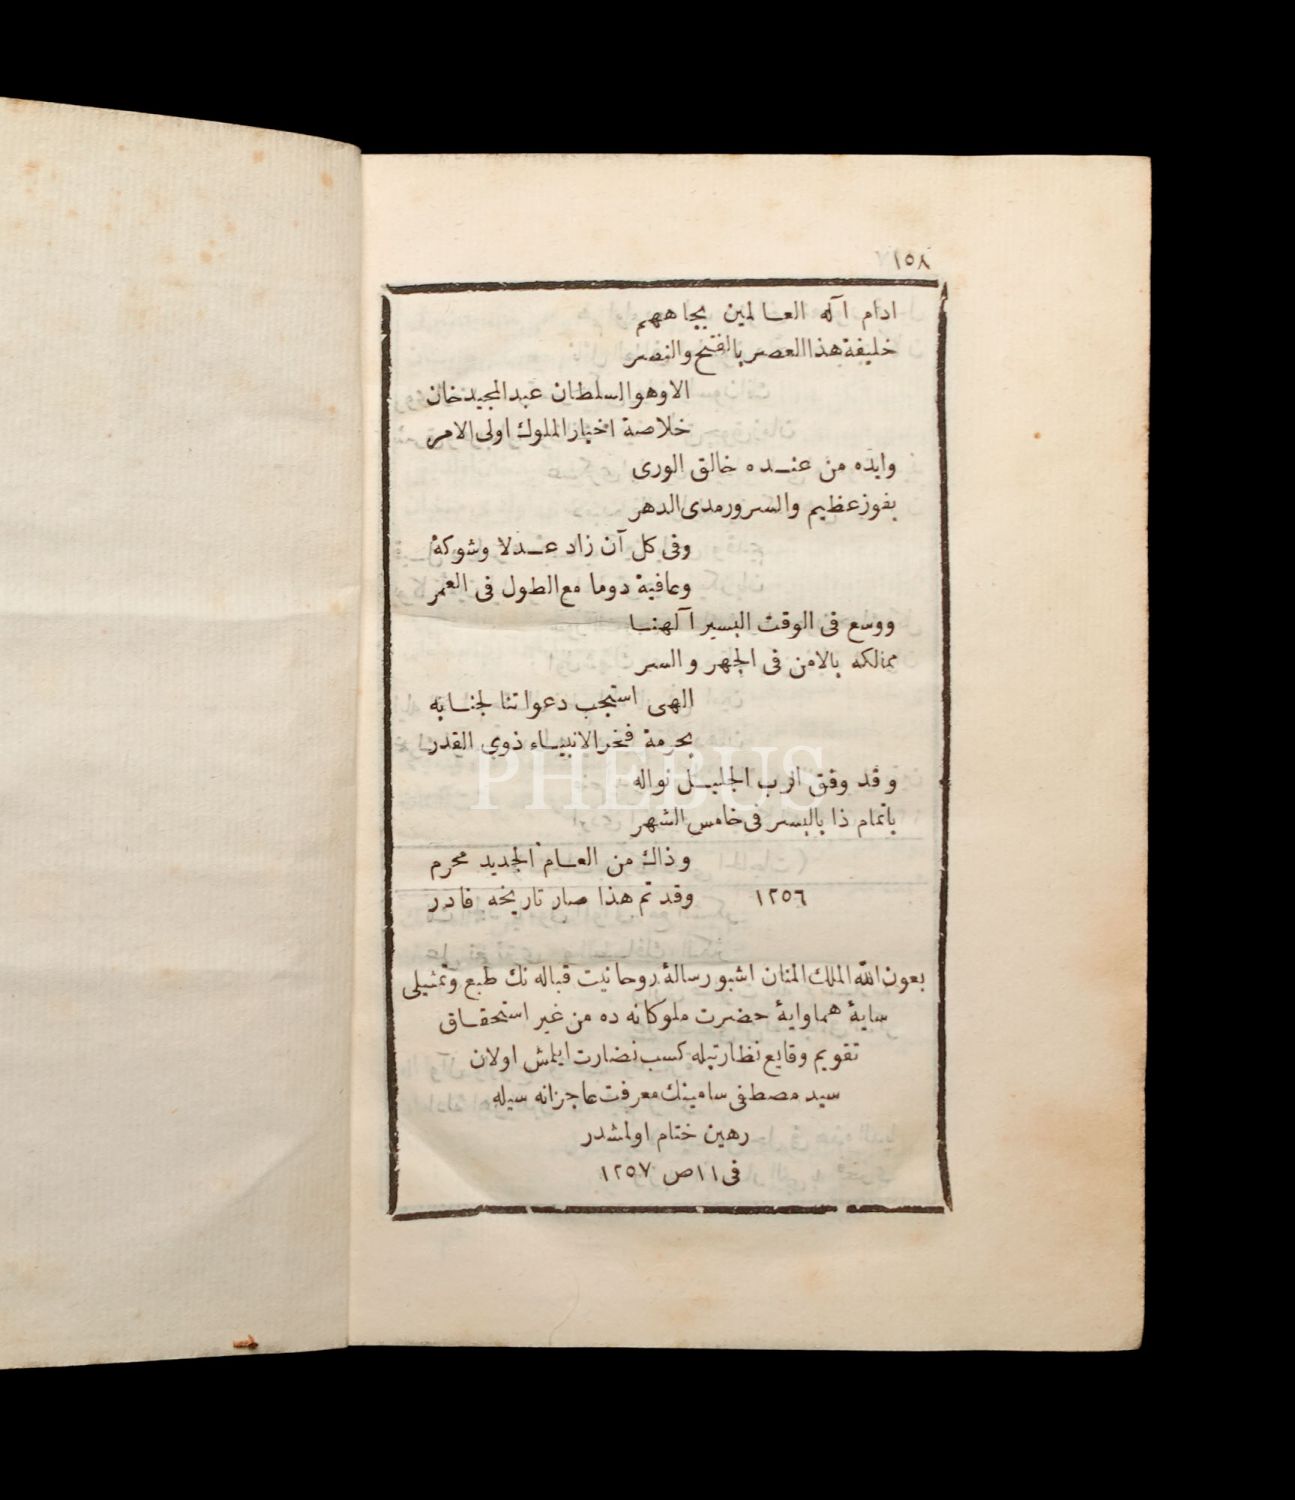 ١٥٨
ادام آله العالمين بجاههم
خليفة هذا العصر بالفتح والنصر
الا وهو السلطان عبد المجيد خان
خلاصة اخيار الملوك اولى الامر
وايده من عنده خالق الورى
بفوز عظيم والسرور مدى الدهر
وفى كل آن زاد عدلا وشوكة
وعافية دوما مع الطول فى العمر
ووسع فى الوقت اليسير آلهنا
ممالكه بالامن فى الجهر والسر
الهى استجب دعواتنا لجنابه
بحرمة فخر الانبياء ذوي القدر
وقد وفق الرب الجليل نواله
باتمام ذا باليسر فى خامس الشهر
وذاك من العام الجديد محرم
وقد تم هذا صار تاريخه فادر ١٢٥٦
بعون الله الملك المنان اشبو رسالۀ روحانيت قباله نك طبع وتمثيلى
سايۀ همايوايۀ حضرت ملوكانه ده من غير استحقاق
تقويم وقايع نظارتيله كسب نضارت ايلمش اولان
سيد مصطفى سامينك معرفت عاجزانه سيله
رهين ختام اولمشدر
فى ١١ ص ١٢٥٧
PHEBUS